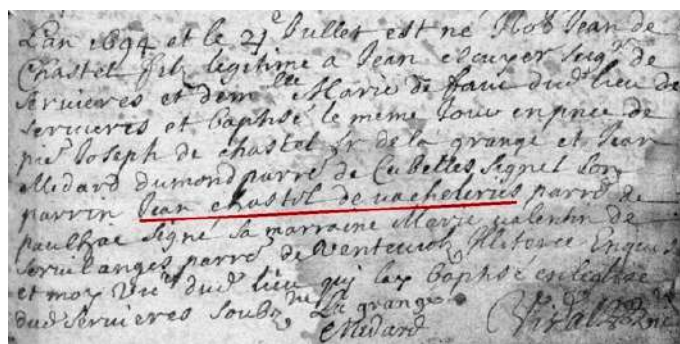 L'an 1694 et le 21e Juillet est né Nob Jean de
Chastel fils legitime a Jean escuyer seigr de
Servieres et demlle Marie de fauc dud lieu de
servieres et baptisé le meme Jour en pnce de
pre Joseph de chastel sr de la grange et Jean
Medard dumond parre de Cubelles signes son
parrin Jean chastel de vacheleries parre de
paulhac signé sa marraine Marie valentin de
parre de Venteuich
et moy vicre dud lieu qui lay baptisé en leglise
dud Servieres soubz La grange
Medard Vidal